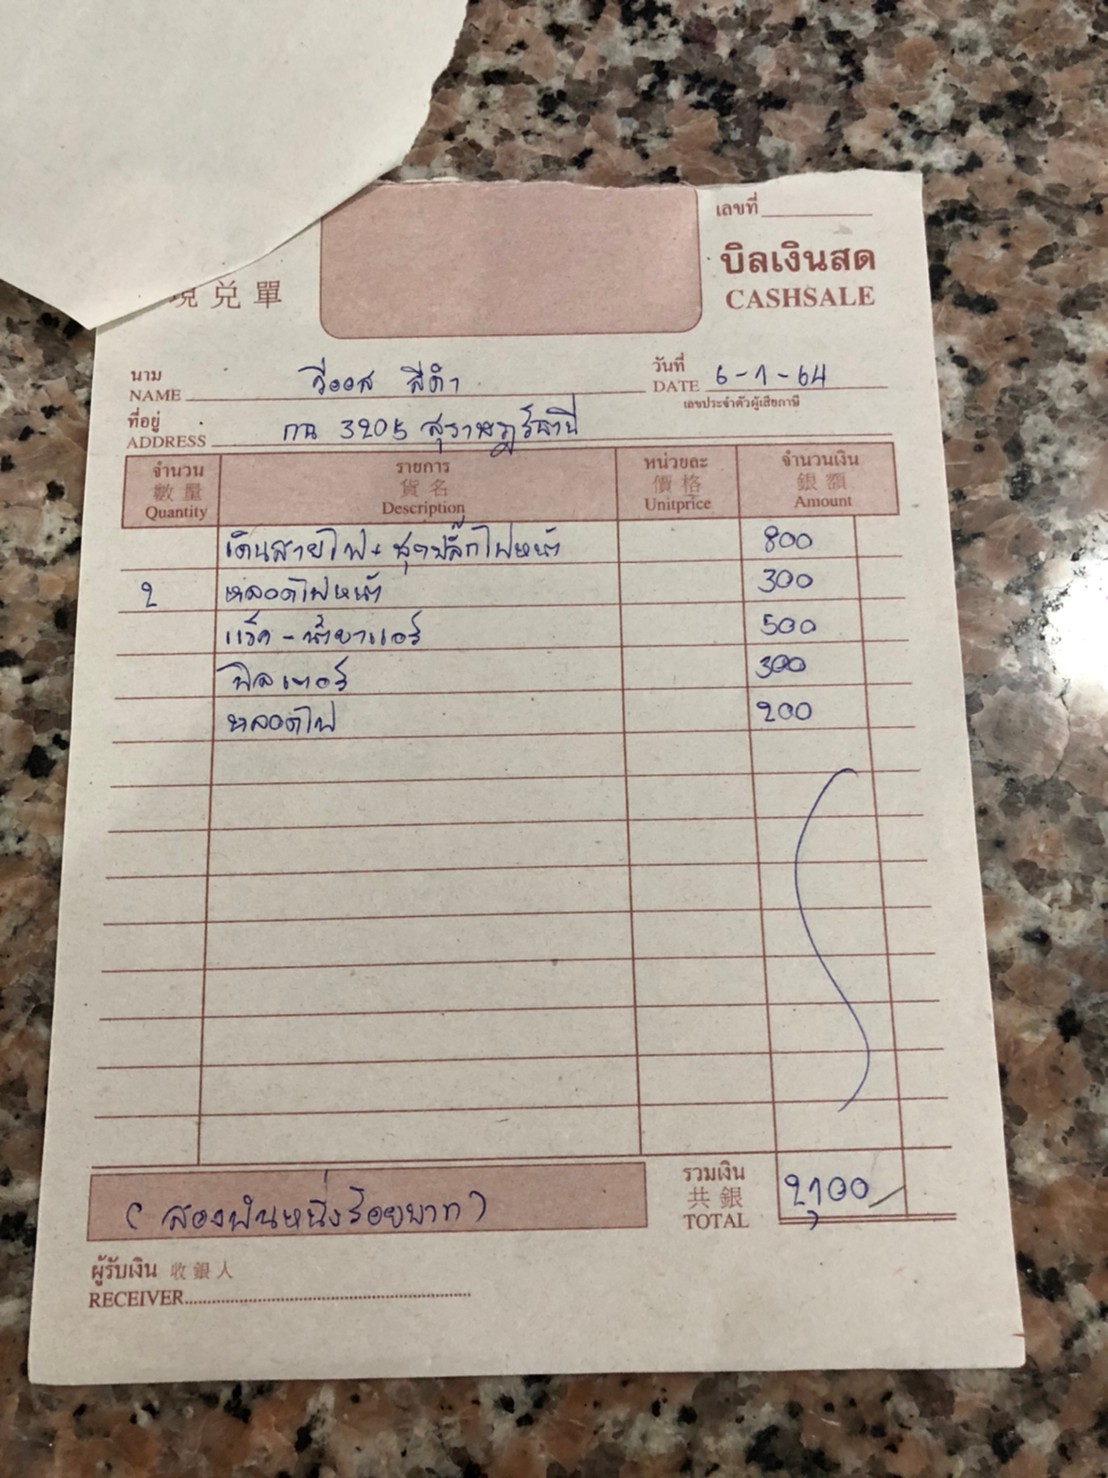 เลขที่
บิลเงินสด
CASHSALE
兌單
นาม
NAME วีออส สีดำ
วันที่
DATE 6-1-64
เลขประจำตัวผู้เสียภาษี
ที่อยู่
ADDRESS กน 3205 สุราษฎร์ธานี
จำนวน 數量 Quantity รายการ 貨名 Description หน่วยละ 價格 Unitprice จำนวนเงิน 銀額 Amount
เดินสายไฟ + ชุดปลั๊กไฟหน้า 800
2 หลอดไฟหน้า 300
แว็ค - น้ำยาแอร์ 500
ฟิลเตอร์ 300
หลอดไฟ 200
(สองพันหนึ่งร้อยบาท)
รวมเงิน
共銀
TOTAL 2,100
ผู้รับเงิน 收銀人
RECEIVER